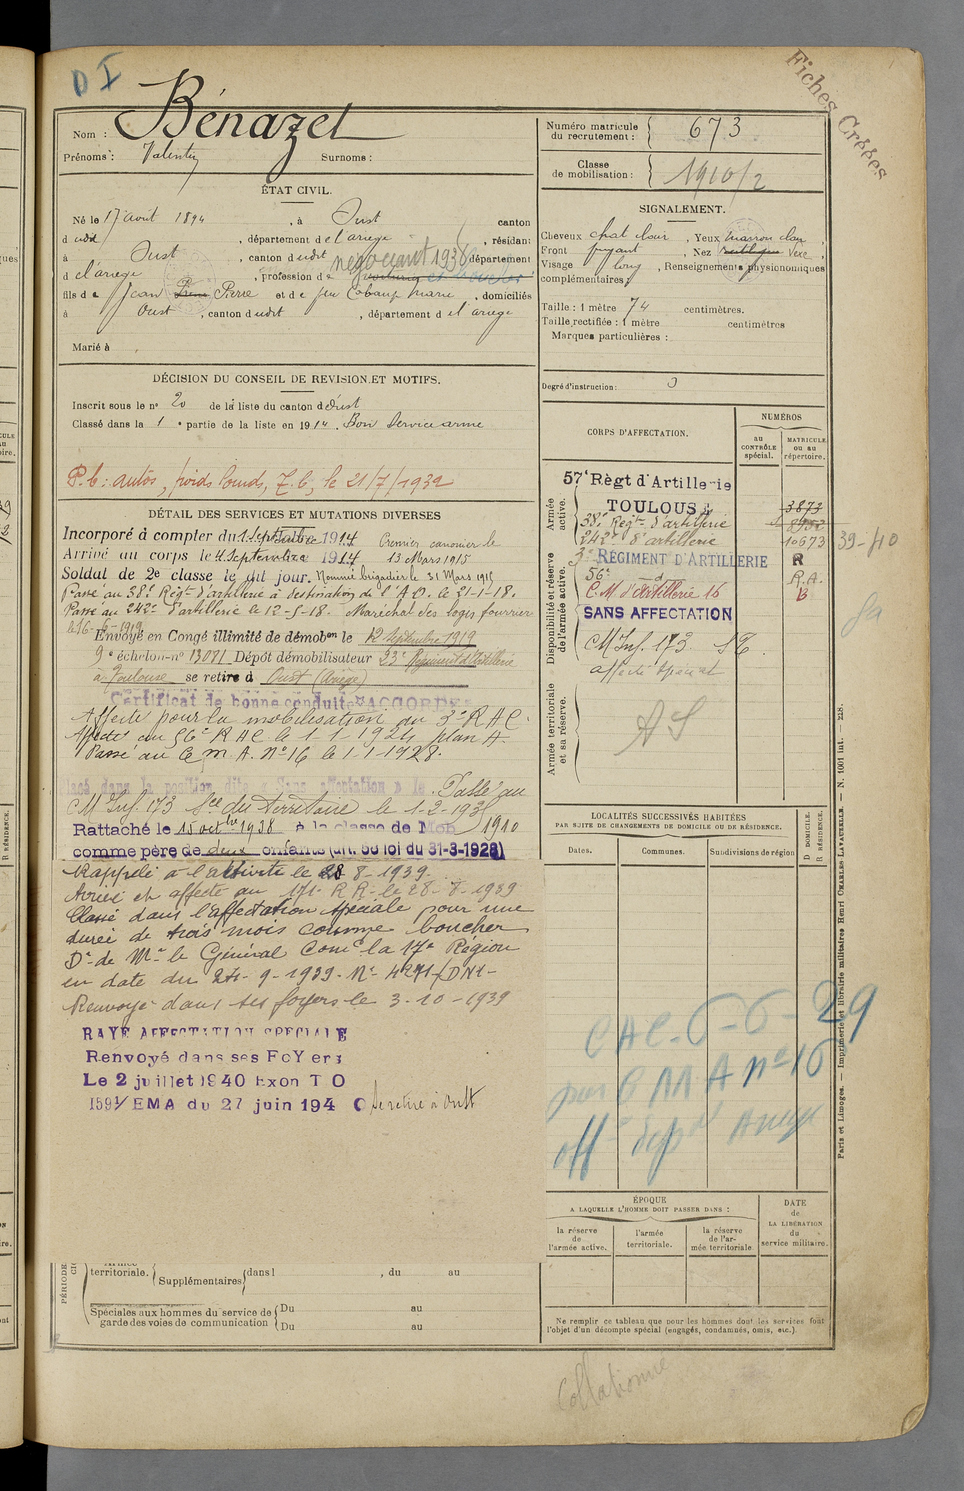 D I
Fiches Créées
Nom : Bénazet
Prénoms : Valentin Surnoms :
Numéro matricule
du recrutement : 673
Classe
de mobilisation : 1910/2
ÉTAT CIVIL.
Né le 17 août 1894, à Oust canton
d udt, département d e l'ariege, résidant
à Oust, canton d udit département
négociant 1938
d el'ariege, profession de et boucher
fils de Jean Pierre et de feu Cabaup marie, domiciliés
à Oust, canton d udit, département d el'ariege
Marié à
SIGNALEMENT.
Cheveux chat. clair, Yeux marron clair,
Front fuyant, Nez rectiligne vexe,
Visage long, Renseignements physionomiques
complémentaires,
Taille : 1 mètre 74 centimètres.
Taille rectifiée : 1 mètre centimètres
Marques particulières :
Degré d'instruction : 3
DÉCISION DU CONSEIL DE REVISION ET MOTIFS.
Inscrit sous le n° 20 de la liste du canton d'Oust
Classé dans la 1e partie de la liste en 1914. Bon Service armé
P.L : autos, poids lourds, T.C, le 21/7/1932
DÉTAIL DES SERVICES ET MUTATIONS DIVERSES
Incorporé à compter du 1 Septembre 1914 Premier canonier le
Arrivé au corps le 4 Septembre 1914 13 Mars 1915
Soldat de 2e classe le dit jour. Nommé brigadier le 31 Mars 1915
Passé au 38e Régt d'artillerie à destination de l'A O. le 21-1-18.
Passé au 242e d'artillerie le 12-5-18. Maréchal des logis fourrier
le 16-6-1919
Envoyé en Congé illimité de démobon le 12 Septembre 1919
9e échelon-n° 13081 Dépôt démobilisateur 23e Régiment d'Artillerie
à Toulouse se retire à Oust (Ariège)
Certificat de bonne conduite ACCORDÉ
Affecté pour la mobilisation au 3e R A C.
Affecté au 56e R A C le 1-1-1924 plan A.
Passé au C. m. A. N° 16 le 1-1-1928.
Placé dans la position dite « Sans affectation » le Passé au
C M Inf. 173 Sce du Territoire le 1-2-193
Rattaché le 15 octbre 1938 à la classe de Mob 1910
comme père de deux enfants (art. 58 loi du 31-3-1928)
Rappelé à l'activité le 28-8-1939
Arrivé et affecté au 171e R R. le 28-8-1939
Classé dans l'affectation spéciale pour une
durée de trois mois comme boucher
Dn de Mr le Général Comt la 17e Région
en date du 24-9-1939. N° 4271/DN1-
Renvoyé dans ses foyers le 3-10-1939
RAYE AFFECTATION SPECIALE
Renvoyé dans ses FoYers
Le 2 juillet 1940 Exon T O
1591/EMA du 27 juin 1940 Se retire à Oust
CORPS D'AFFECTATION.
NUMÉROS
au
CONTRÔLE
spécial.
MATRICULE
ou au
répertoire.
Armée
active.
57e Règt d'Artillerie
TOULOUSE 3873
38e Régt d'artillerie
242e d'artillerie 10673
39-40
Disponibilité et réserve
de l'armée active.
3e RÉGIMENT D'ARTILLERIE R
56e d° R.A.
C.M d'Artillerie 16 B
SANS AFFECTATION
C M Inf. 173
affecté spécial
Armée territoriale
et sa réserve.
A S
LOCALITÉS SUCCESSIVES HABITÉES
PAR SUITE DE CHANGEMENTS DE DOMICILE OU DE RÉSIDENCE.
D DOMICILE.
R RÉSIDENCE.
Dates. Communes. Subdivisions de région
CAC-6-6-29
pour C M A n° 16
Ariege
ÉPOQUE
A LAQUELLE L'HOMME DOIT PASSER DANS :
la réserve
de
l'armée active.
l'armée
territoriale.
la réserve
de l'ar-
mée territoriale
DATE
de
LA LIBÉRATION
du
service militaire.
territoriale. Supplémentaires dans l , du au
Spéciales aux hommes du service de
garde des voies de communication
Du au
Du au
Ne remplir ce tableau que pour les hommes dont les services font
l'objet d'un décompte spécial (engagés, condamnés, omis, etc.).
Paris et Limoges. — Imprimerie et librairie militaires Henri CHARLES LAVAUZELLE. — N. 1001 int. — 228.
Collationné